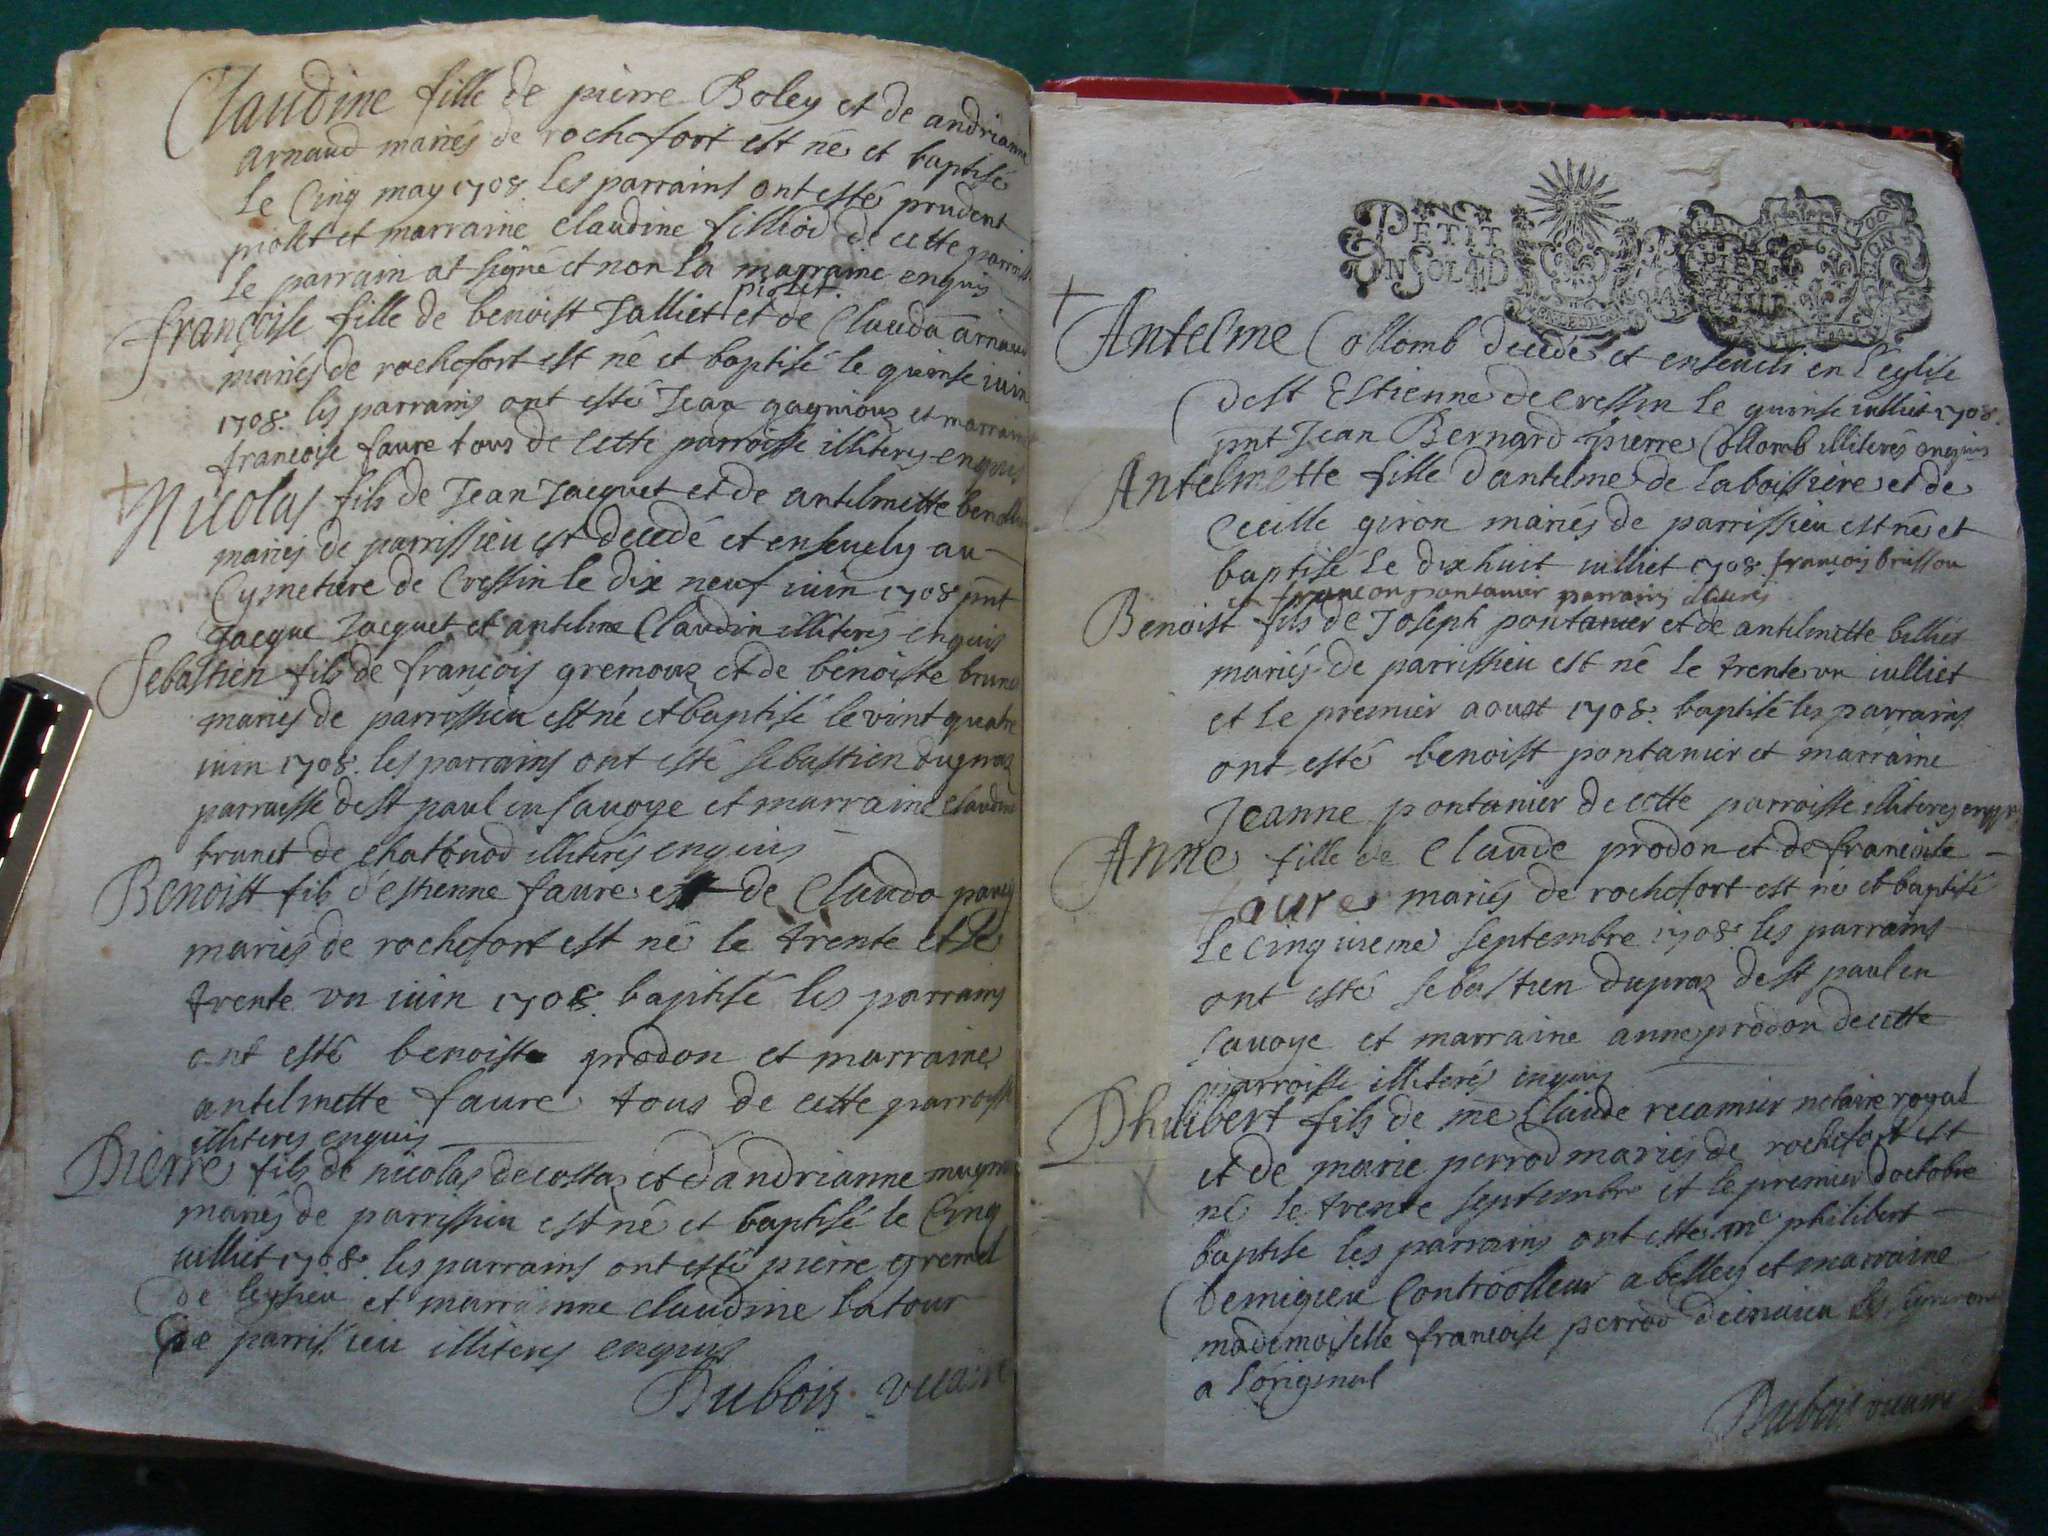 Claudine fille de pierre Boley et de andrianne
Arnaud mariés de rochefort est né et baptisé
le Cinq may 1708 les parrains ont esté prudent
piollet et marraine claudine filliod de cette parroisse
le parrain at signé et non la marraine enquis
piollet
françoise fille de benoist Jalliet et de Clauda arnaud
mariés de rochefort est né et baptisé le quinse iuin
1708. les parrains ont esté Jean gagnioux et marraine
francoise faure tous de cette parroisse illiteres enquis
Nicolas fils de Jean Jacquet et de antelmette
mariés de parrissieu est decedé et ensevely au
Cymetiere de Cressin le dix neuf iuin 1708 pnt
Jacque Jacquet et antelme Claudin illiterés enquis
Sebastien fils de françois gremouz et de benoiste brunet
mariés de parrissieu est né et baptisé le vint quatre
iuin 1708. les parrains ont esté sebastien dupraz
parroesse de st paul en savoye et marraine claudine
brunet de chatonod illiterés enquis
Benoist fils d'estienne faure et de Clauda
mariés de rochefort est né le trente et le
trente un iuin 1708. baptisé les parrains
ont esté benoist prodon et marraine
antelmette faure tous de cette parroisse
illiteres enquis
Pierre fils de nicolas decostaz et d'andrianne
mariés de parrissieu est né et baptisé le Cinq
iulliet 1708. les parrains ont esté pierre gremel
de leyssieu et marrainne claudine latour
de parrissieu illiteres enquis
Dubois vicaire
PETIT
EN SOL 4 D
Antelme Collomb decedé et enseveli en l'eglise
de st Estienne de cressin le quinse iulliet 1708.
pnt Jean Bernard pierre Collomb illiterés enquis
Antelmette fille d'antelme de laboissiere et de
Cecille giron mariés de parrissieu est né et
baptisé le dix huit iulliet 1708. françois brisson
et françon pontanier parrains
Benoist fils de Joseph pontanier et de antelmette billiet
mariés de parrissieu est né le trente un iulliet
et le premier aoust 1708. baptisé les parrains
ont esté benoist pontanier et marraine
Jeanne pontanier de cette parroisse illiteres enquis
Anne fille de Claude prodon et de francoise
faure mariés de rochefort est né et baptisé
le cinquieme septembre 1708. les parrains
ont esté sebastien dupraz de st paul en
savoye et marraine anne prodon de cette
parroisse illiterés enquis
Philibert fils de me Claude recamier notaire royal
et de marie perrod mariés de rochefort est
né le trente septembre et le premier d'octobre
baptisé les parrains ont esté me philibert
demigieu Controolleur a belley et marraine
mademoiselle francoise perrod
a l'original
Dubois vicaire